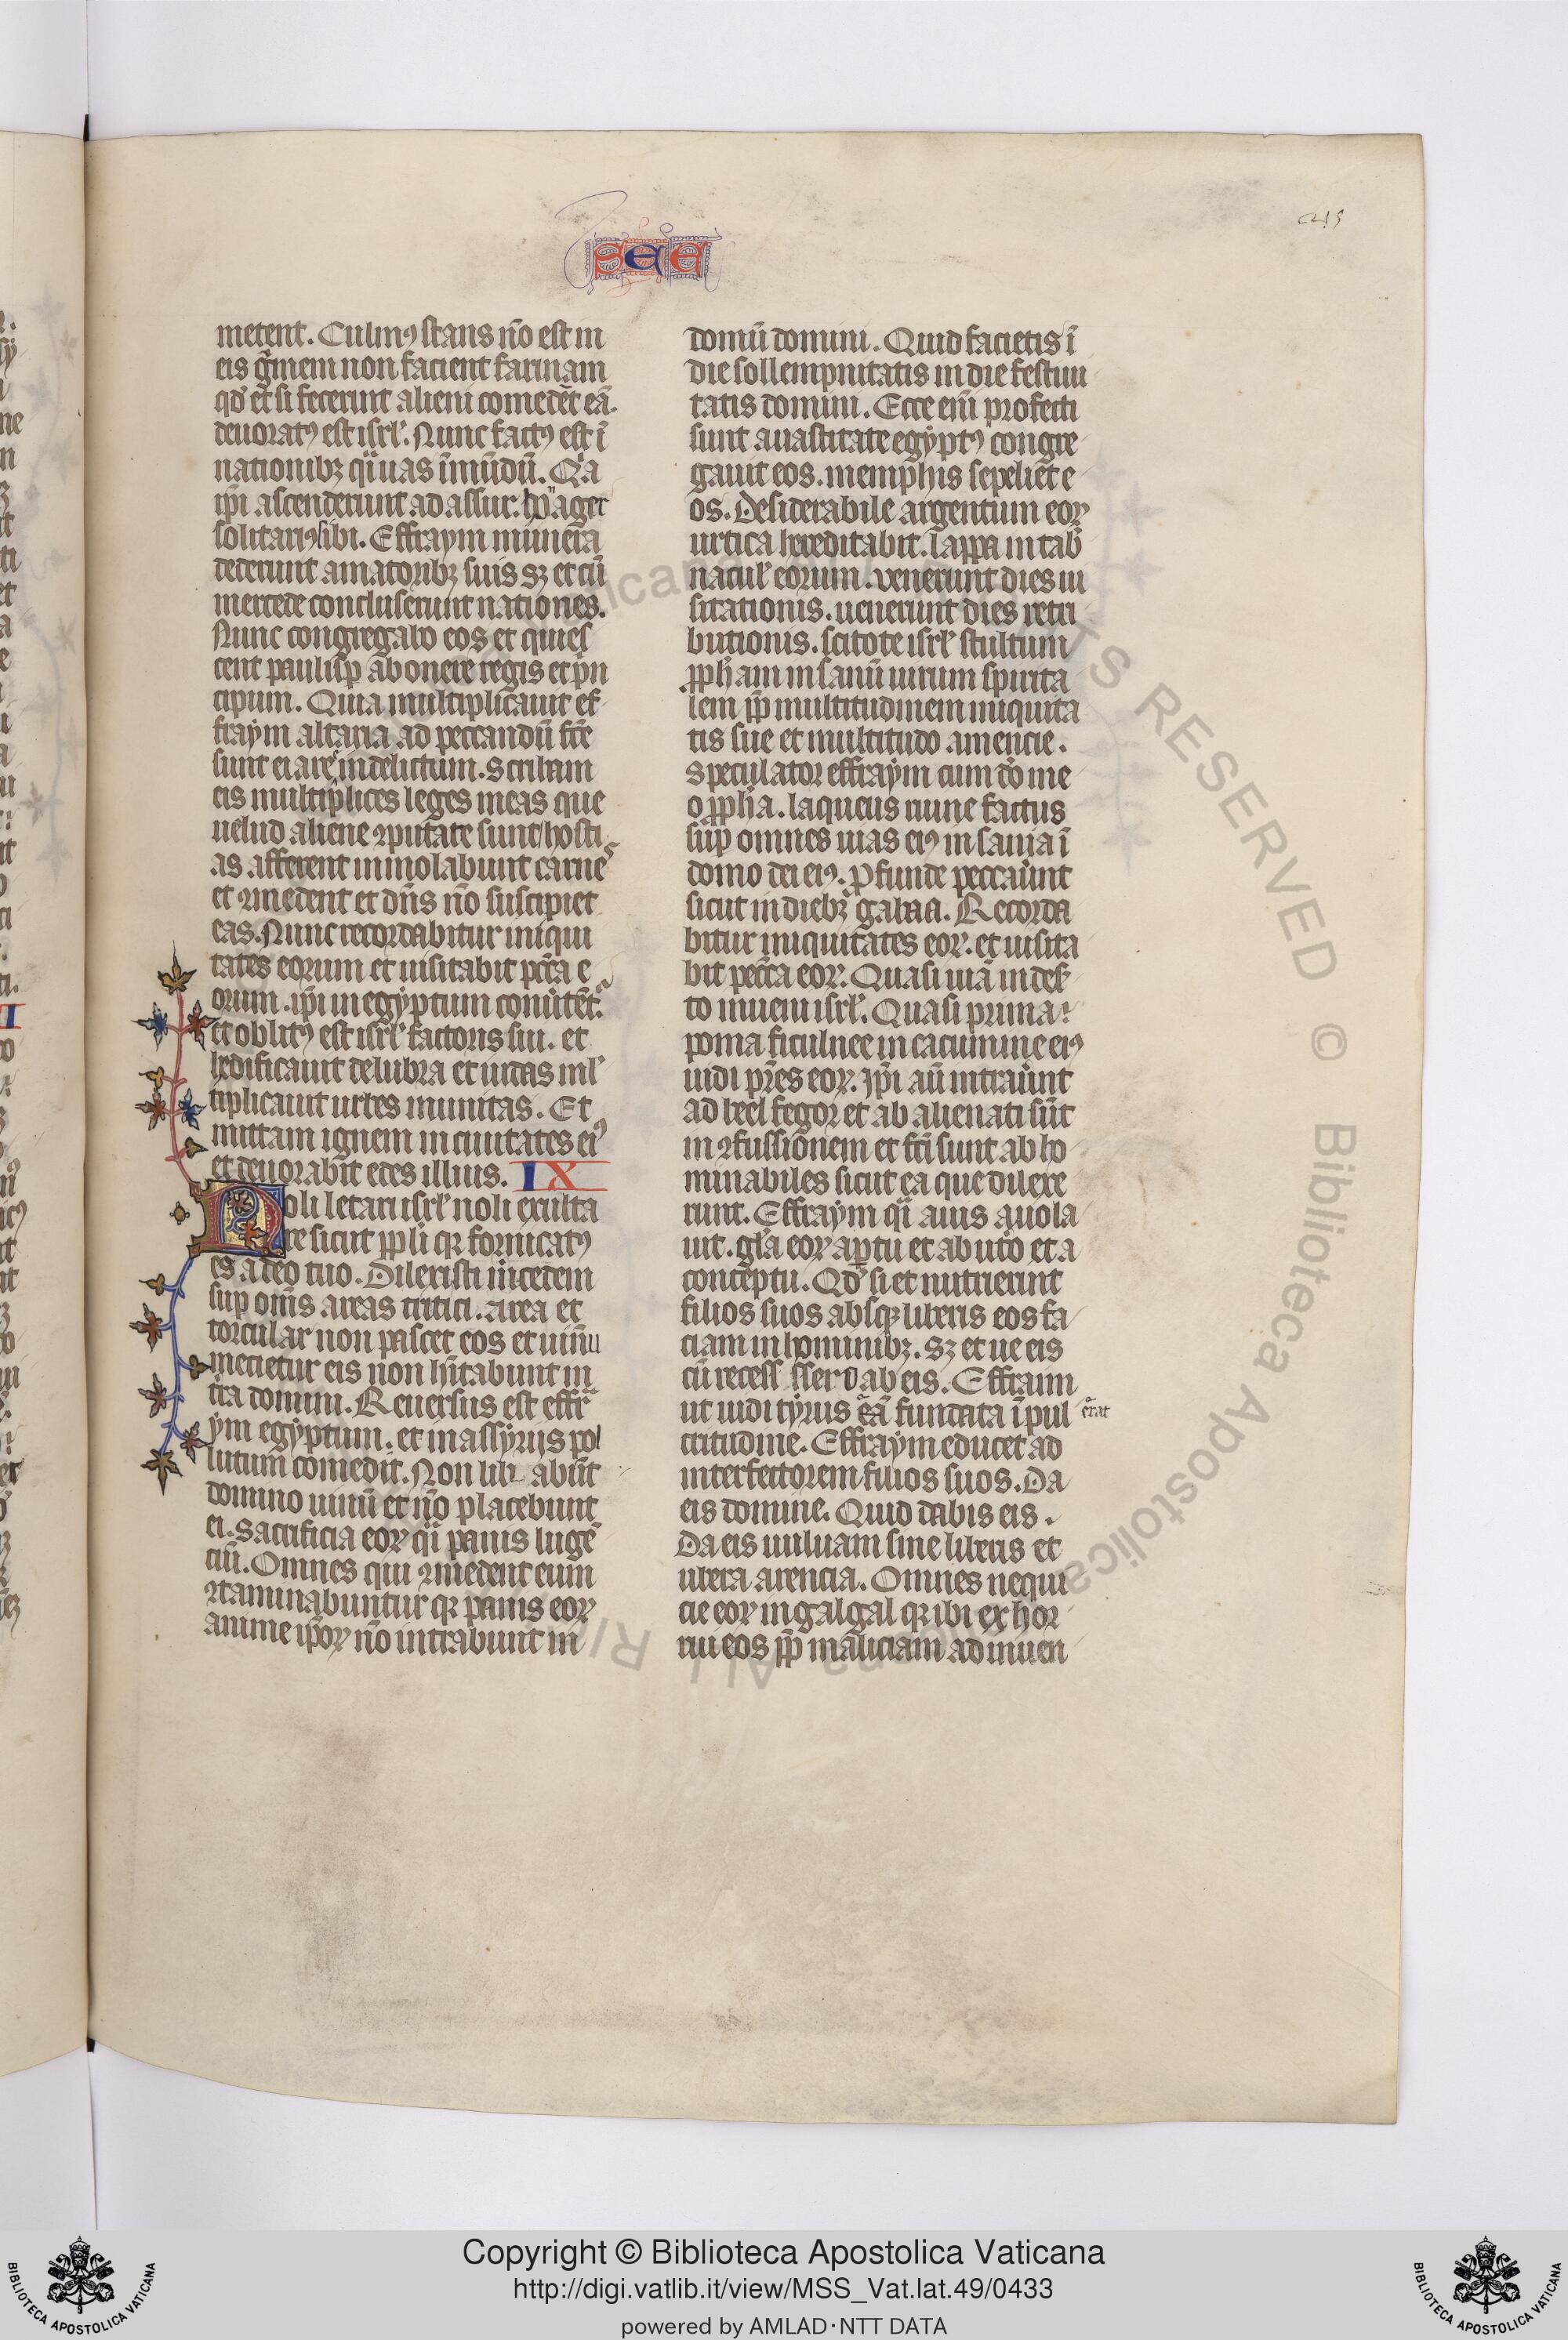 SEE
metent. Culmꝰ stans nō est in
eis g̃men non facient farinam
qđ et si fecerint alieni comedēt eā.
deuoratꝰ est isrl̓. Nunc factꝰ est ī
nationibꝫ q̈i uas īmūdū. Qꝛa
ip̄i ascenderunt ad assur. ager
solitariꝰ sibi. Effraym munera
dederunt amatoribꝫ suis sꝫ et cū
mercede conduserunt nationes.
Nunc congregabo eos et quies
cent paulisꝑ ab onere regis et pn̄
cipum. Quia multiplicauit ef
fraym altaria ad peccandū fc̄e
sunt ei are in delictum. Scribam
eis multiplices leges meas que
uelud aliene ꝯputate sunt hosti
as afferent inmolabunt carnes
et ꝯmedent et dn̄s nō suscipiet
eas. Nunc recordabitur iniqui
tates eorum et uisitabit pcc̄a e
orum. ip̄i in egyptum conūtēt.ᷓ
et oblitꝰ est isrl̓ factoris sui. et
hedificauit delubra et iudas ml̓
tiplicauit urbes munitas. Et
mittam ignem in ciuitates eiꝰ
et deuorabit edes illius. IX
Noli letari isrl̓ noli exulta
re sicut pp̄li qꝛ fornicatꝰ
es a deo tuo. Dilexisti m̓cedem
suꝑ om̄s areas tritici. area et
torcular non pascet eos et uinū
mecietur eis non hītabunt in
t̓ra domini. Reuersus est effra
ym egyptum. et in assyrijs pol
lutum comedit. Non lib abūt
domino uinū et nō placebunt
ei. Sacrificia eoꝝ q̈i panis luge
ciū. Omnes qui ꝯmedent eum
ꝯtaminabuntur qꝛ panis eoꝝ
anime ip̄oꝝ nō intrabunt in
domū domini. Quid facietis ī
die sollempnitatis in die festiui
tatis domini. Ecce eni̅ profecti
sunt a uastitate egyptꝰ congre
gauit eos. memphis sepeliet e
os. Desiderabile argentum eoꝝ
urtica hereditabit. Lappa in tab̓
nacul̓ eorum. venerunt dies ui
sitationis. uenerunt dies retri
butionis. scitote isrl̓ stultum
ꝓph̓am insanū uirum spirita
lem ꝓp̄ multitudinem iniquita
tis sue et multitudo amencie.
Speculator effraym cum d̓o me
o ꝓph̓a. laqueus ruine factus
suꝑ omnes uias eiꝰ insania ī
domo dei eiꝰ. ꝓfunde peccau̓unt
sicut in diebꝫ gabaa. Recorda
bitur iniquitates eoꝝ. et uisita
bit pecc̄a eoꝝ. Quasi uuā in des̓
to inueni isrl̓. Quasi prima
poma ficulnee in cacumine eiꝰ
uidi pr̄es eoꝝ. Ip̄i aū intrau̓unt
ad beelfegor et ab alienati sūt
in ꝯfussionem et fc̄i sunt ab ho
minabiles sicut ea que dilexe
runt. Effraym q̈i auis auola
uit. gl̄a eoꝝ a ꝑtu et ab ut̓o et a
conceptu. Qđ si et nutrierint
filios suos absqꝫ liberis eos fa
ciam in hominibꝫ. Sꝫ et ue eis
cū recess sero ab eis. Effraim
ut uidi tyrus fundata ī pul
erat
critudine. Effraym educet ad
interfectorem filios suos. Da
eis domine. Quid dabis eis.
Da eis uuluam sine liberis et
ubera arencia. Omnes nequi
cie eoꝝ in galgal qꝛ ibi exhor
rui eos ꝓp̄ maliciam adinuen
BIBLIOTECA APOSTOLICA VATICANA
Copyright © Biblioteca Apostolica Vaticana
http://digi.vatlib.it/view/MSS_Vat.lat.49/0433
powered by AMLAD·NTT DATA
BIBLIOTECA APOSTOLICA VATICANA